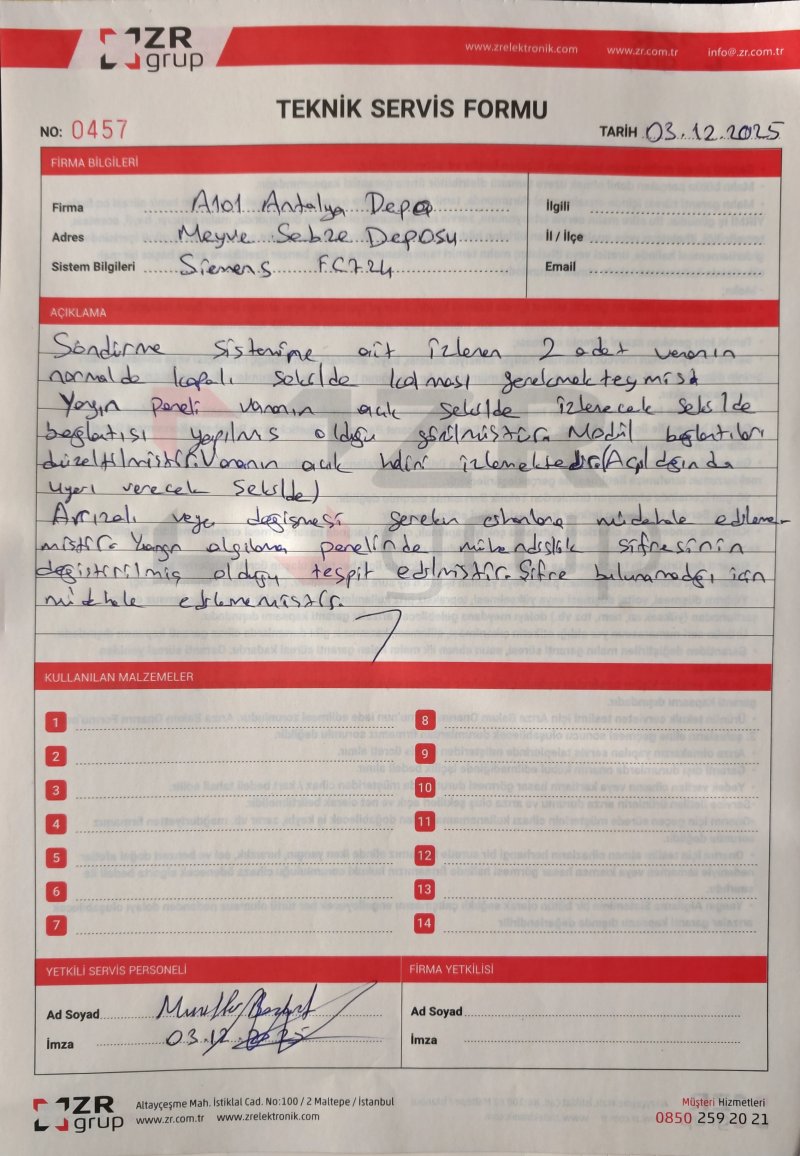 ZR grup
www.zrelektronik.com www.zr.com.tr info@.zr.com.tr
TEKNİK SERVİS FORMU
NO: 0457
TARİH 03.12.2025
FİRMA BİLGİLERİ
Firma A101 Antalya Depo
Adres Meyve Sebze Deposu
Sistem Bilgileri Siemens FC724
İlgili
İl / İlçe
Email
AÇIKLAMA
Söndürme sistemine ait izlenen 2 adet vananın
normalde kapalı şekilde kalması gerekmekteymiş
Yangın paneli vananın açık şekilde izlenecek şekilde
bağlantısı yapılmış olduğu görülmüştür. Modül bağlantıları
düzeltilmiştir. Vananın açık halini izlemektedir. (Açıldığında
uyarı verecek şekilde)
Arızalı veya değişmesi gereken ekipmanlara müdahale edileme-
miştir. Yangın algılama panelinde mühendislik şifresinin
değiştirilmiş olduğu tespit edilmiştir. Şifre bulunamadığı için
müdahale edilememiştir.
KULLANILAN MALZEMELER
1
2
3
4
5
6
7
8
9
10
11
12
13
14
YETKİLİ SERVİS PERSONELİ
Ad Soyad
İmza 03.12.2025
FİRMA YETKİLİSİ
Ad Soyad
İmza
ZR grup
Altayçeşme Mah. İstiklal Cad. No:100 / 2 Maltepe / İstanbul
www.zr.com.tr www.zrelektronik.com
Müşteri Hizmetleri
0850 259 20 21